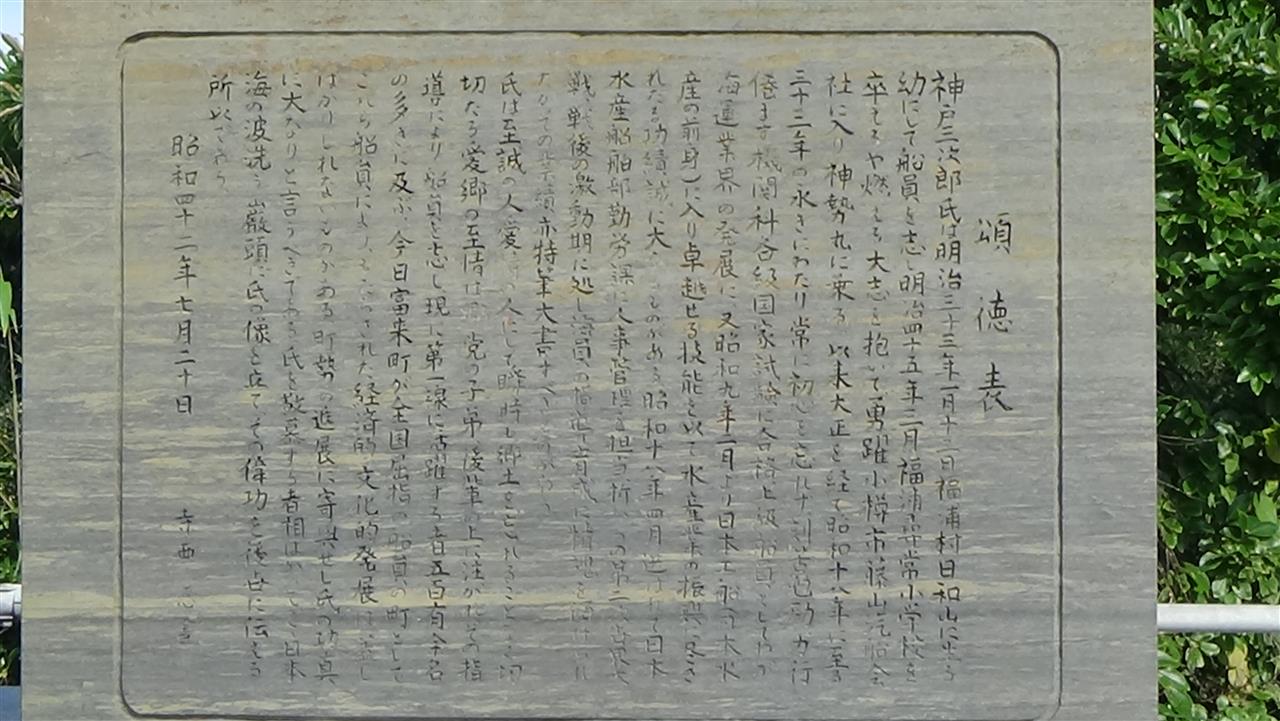 頌徳表
神戸三次郎氏は明治三十三年一月十二日福浦村日和山に生る
幼にして船員を志し明治四十五年三月福浦尋常小学校を
卒えるや燃える大志を抱いて勇躍小樽市藤山汽船会
社に入り神勢丸に乗る 以来大正を経て昭和十八年に至る
三十三年の永きにわたり常に初心を忘れず刻苦勉励力行
倦まず機関科各級国家試験に合格上級船員としてわが
海運業界の発展に又昭和九年二月より日本工船 大水
産の前身)に入り卓越せる技能を以て水産業の振興に尽さ
れたる功績誠に大 ものがある 昭和十八年四月選ばれて日本
水産船舶部勤労課に人事管理を担当 第二次
戦、戦後の激動期に処し 員の指導育成に情熱を
ての業績亦特筆大書すべき
氏は至誠の人 の人にして 時も郷土を れることなく
切たる愛郷の至情は 党の子弟後輩の上に注がれその指
導により船員を志し現に第一線に活躍する者五百有余名
の多きに及ぶ 今日富来町が全国屈指の船員の町として
これら船員によってもたらされた経済的文化的発展は
はかりしれないものがある 町勢の進展に寄与せし氏の功真
に大なりと言うべきである 氏を敬慕する者相はかってここ日本
海の波洗う巌頭に氏の像を立てその偉功を後世に伝える
所以である
昭和四十二年七月二十日
寺西